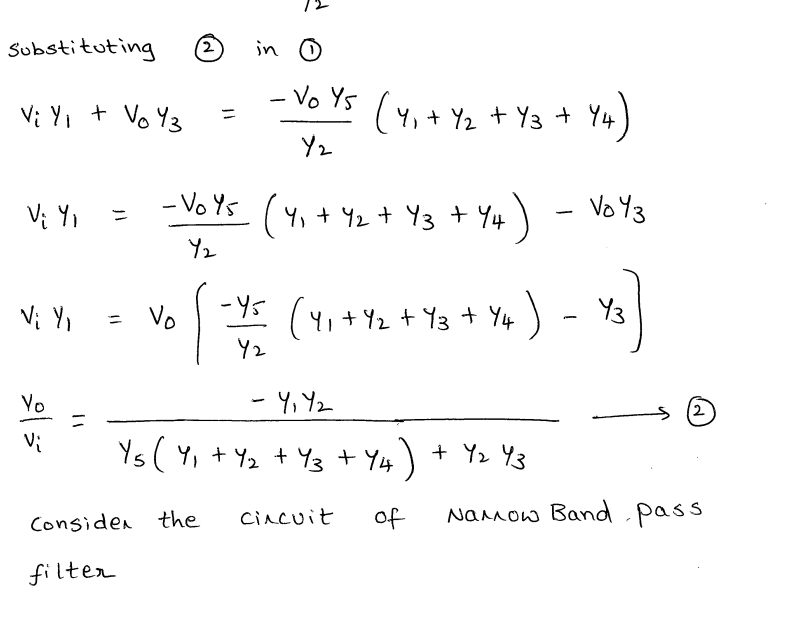 Y2
Substituting ② in ①
Vi Y1 + Vo Y3 = -Vo Y5 / Y2 (Y1 + Y2 + Y3 + Y4)
Vi Y1 = -Vo Y5 / Y2 (Y1 + Y2 + Y3 + Y4) - Vo Y3
Vi Y1 = Vo [ -Y5 / Y2 (Y1 + Y2 + Y3 + Y4) - Y3 ]
Vo / Vi = - Y1 Y2 / Y5 (Y1 + Y2 + Y3 + Y4) + Y2 Y3 → ②
Consider the circuit of Narrow Band pass
filter